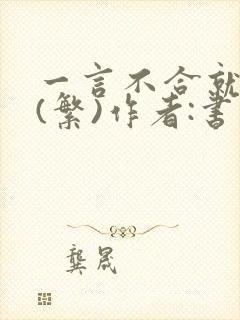 一言不合就
(繁)作者:書
龔晟